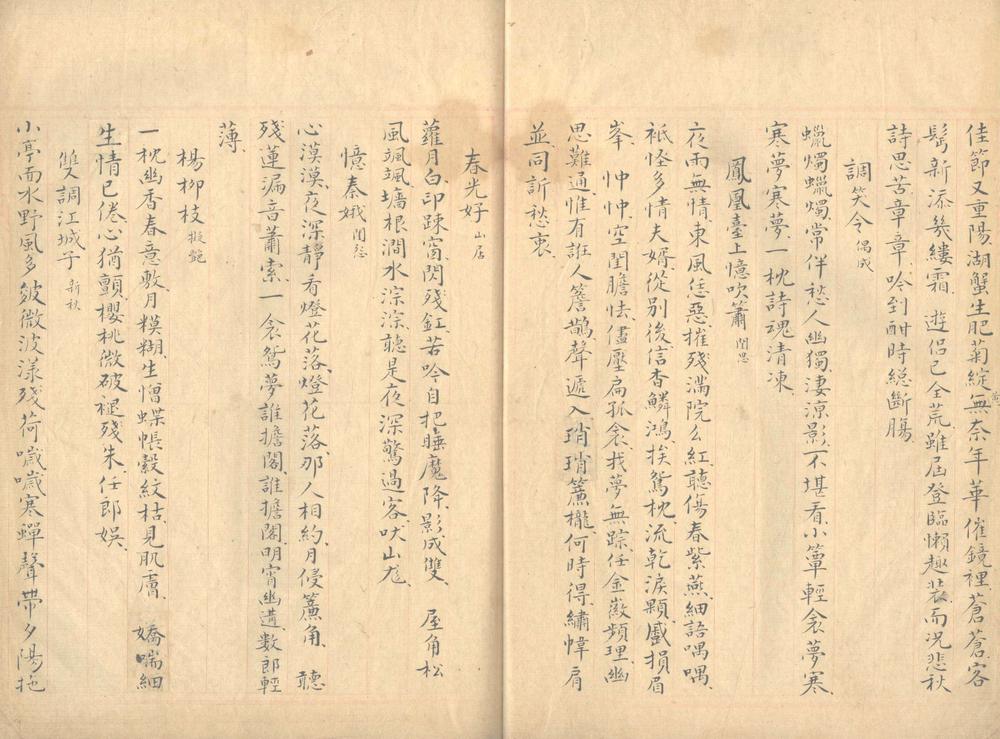 佳節又重陽湖蟹生肥菊綻無奈年華催鏡裡蒼蒼客
鬂新添幾縷霜 遊侶已全荒雖屆登臨懶趣裝而況悲秋
詩思苦章章吟到酣時総斷腸
調笑令 偶成
蠟燭蠟燭常伴愁人幽獨淒涼影不堪看小簟輕衾夢寒
寒夢寒夢一枕詩魂清凍
鳳凰臺上憶吹簫 閨思
夜雨無情東風恁惡摧殘滿院么紅聽傷春紫燕細語喁喁
祗怪多情夫婿從別後信杳鱗鴻挨鴛枕流乾淚顆蹙損眉
峯 忡忡空閨膽怯儘壓扁孤衾找夢無踪任金徽頻理幽
思難通惟有誑人簷鵲聲遞入瑣瑣簾櫳何時得繡幃肩
並同訴愁衷
春光好 山居
蘿月白印踈窗閃殘釭苦吟自把睡魔降影成雙 屋角松
風颯颯墻根澗水淙淙聽是夜深驚過客吠山尨
憶秦娥 閨怨
心漠漠夜深靜有燈花落燈花落那人相約月侵簾角 聽
殘蓮漏音蕭索一衾鴛夢誰擔閣誰擔閣明宵幽遘數郎輕
薄
楊柳枝 擬艷
一枕幽香春意敷月模糊生憎蝶帳縠紋枯見肌膚 嬌喘細
生情已倦心猶顫櫻桃微破褪殘朱任郎娛
雙調江城子 新秋
小亭面水野風多皴微波漾殘荷嘒嘒寒蟬聲帶夕陽拖